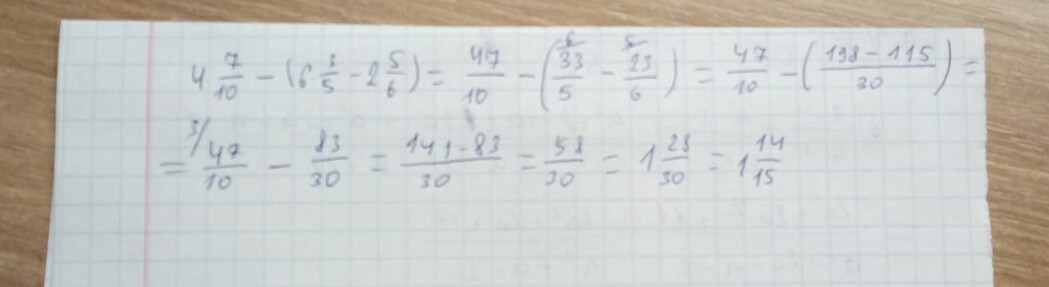 4 7/10 - (6 3/5 - 2 5/6) = 47/10 - (6/ 33/5 - 5/ 23/6) = 47/10 - (198 - 115/30) =
= 3/ 47/10 - 83/30 = 141 - 83/30 = 58/30 = 1 28/30 = 1 14/15